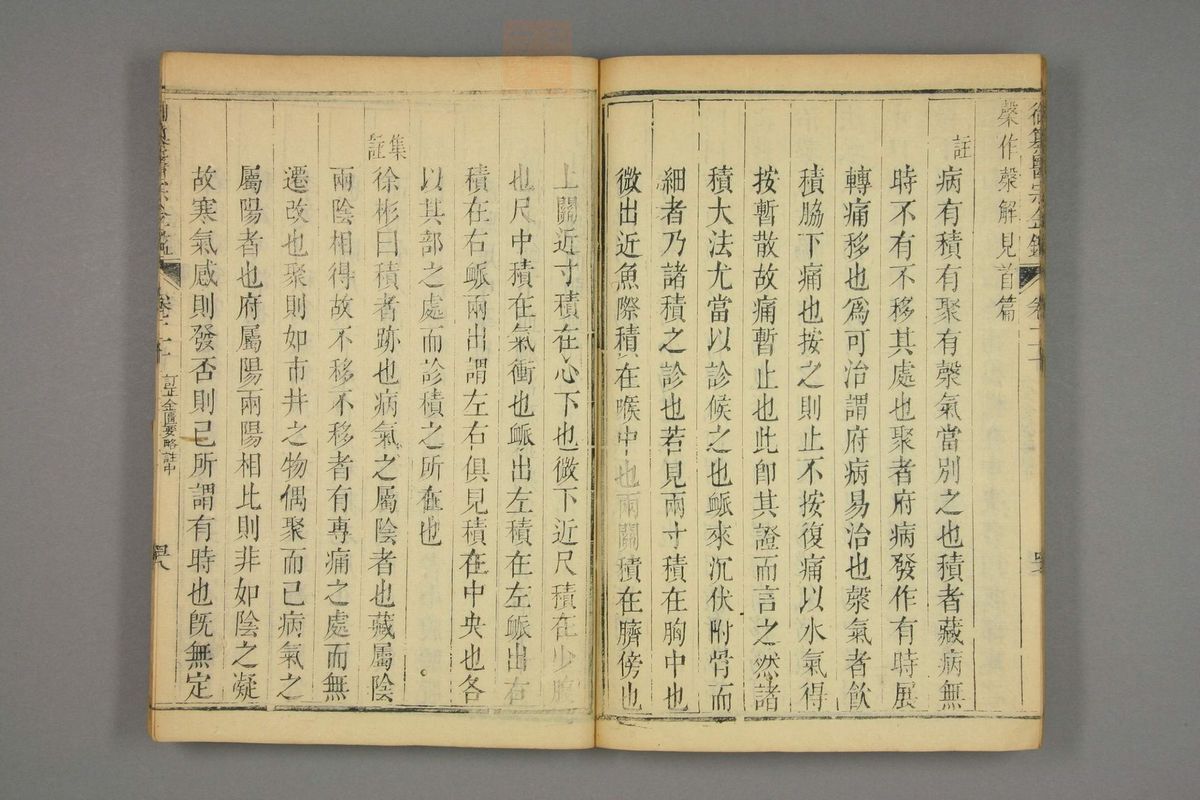 御纂醫宗金鑑
䅽作䅽解見首篇
註
病有積有聚有䅽氣當別之也積者藏病無
時不有不移其處也聚者府病發作有時展
轉痛移也爲可治謂府病易治也䅽氣者飮
積脇下痛也按之則止不按復痛以水氣得
按暫散故痛暫止也此卽其證而言之然諸
積大法尤當以診候之也衇來沉伏附骨而
細者乃諸積之診也若見兩寸積在胸中也
微出近魚際積在喉中也兩關積在臍傍也
上關近寸積在心下也微下近尺積在少腹
也尺中積在氣衝也衇出左積在左衇出右
積在右衇兩出謂左右俱見積在中央也各
以其部之處而診積之所在也
集註
徐彬曰積者跡也病氣之屬陰者也藏屬陰
兩陰相得故不移不移者有專痛之處而無
遷改也聚則如市井之物偶聚而已病氣之
屬陽者也府屬陽兩陽相比則非如陰之凝
故寒氣感則發否則已所謂有時也旣無定
御纂醫宗金鑑 卷二十 訂正金匱要略註中 四八